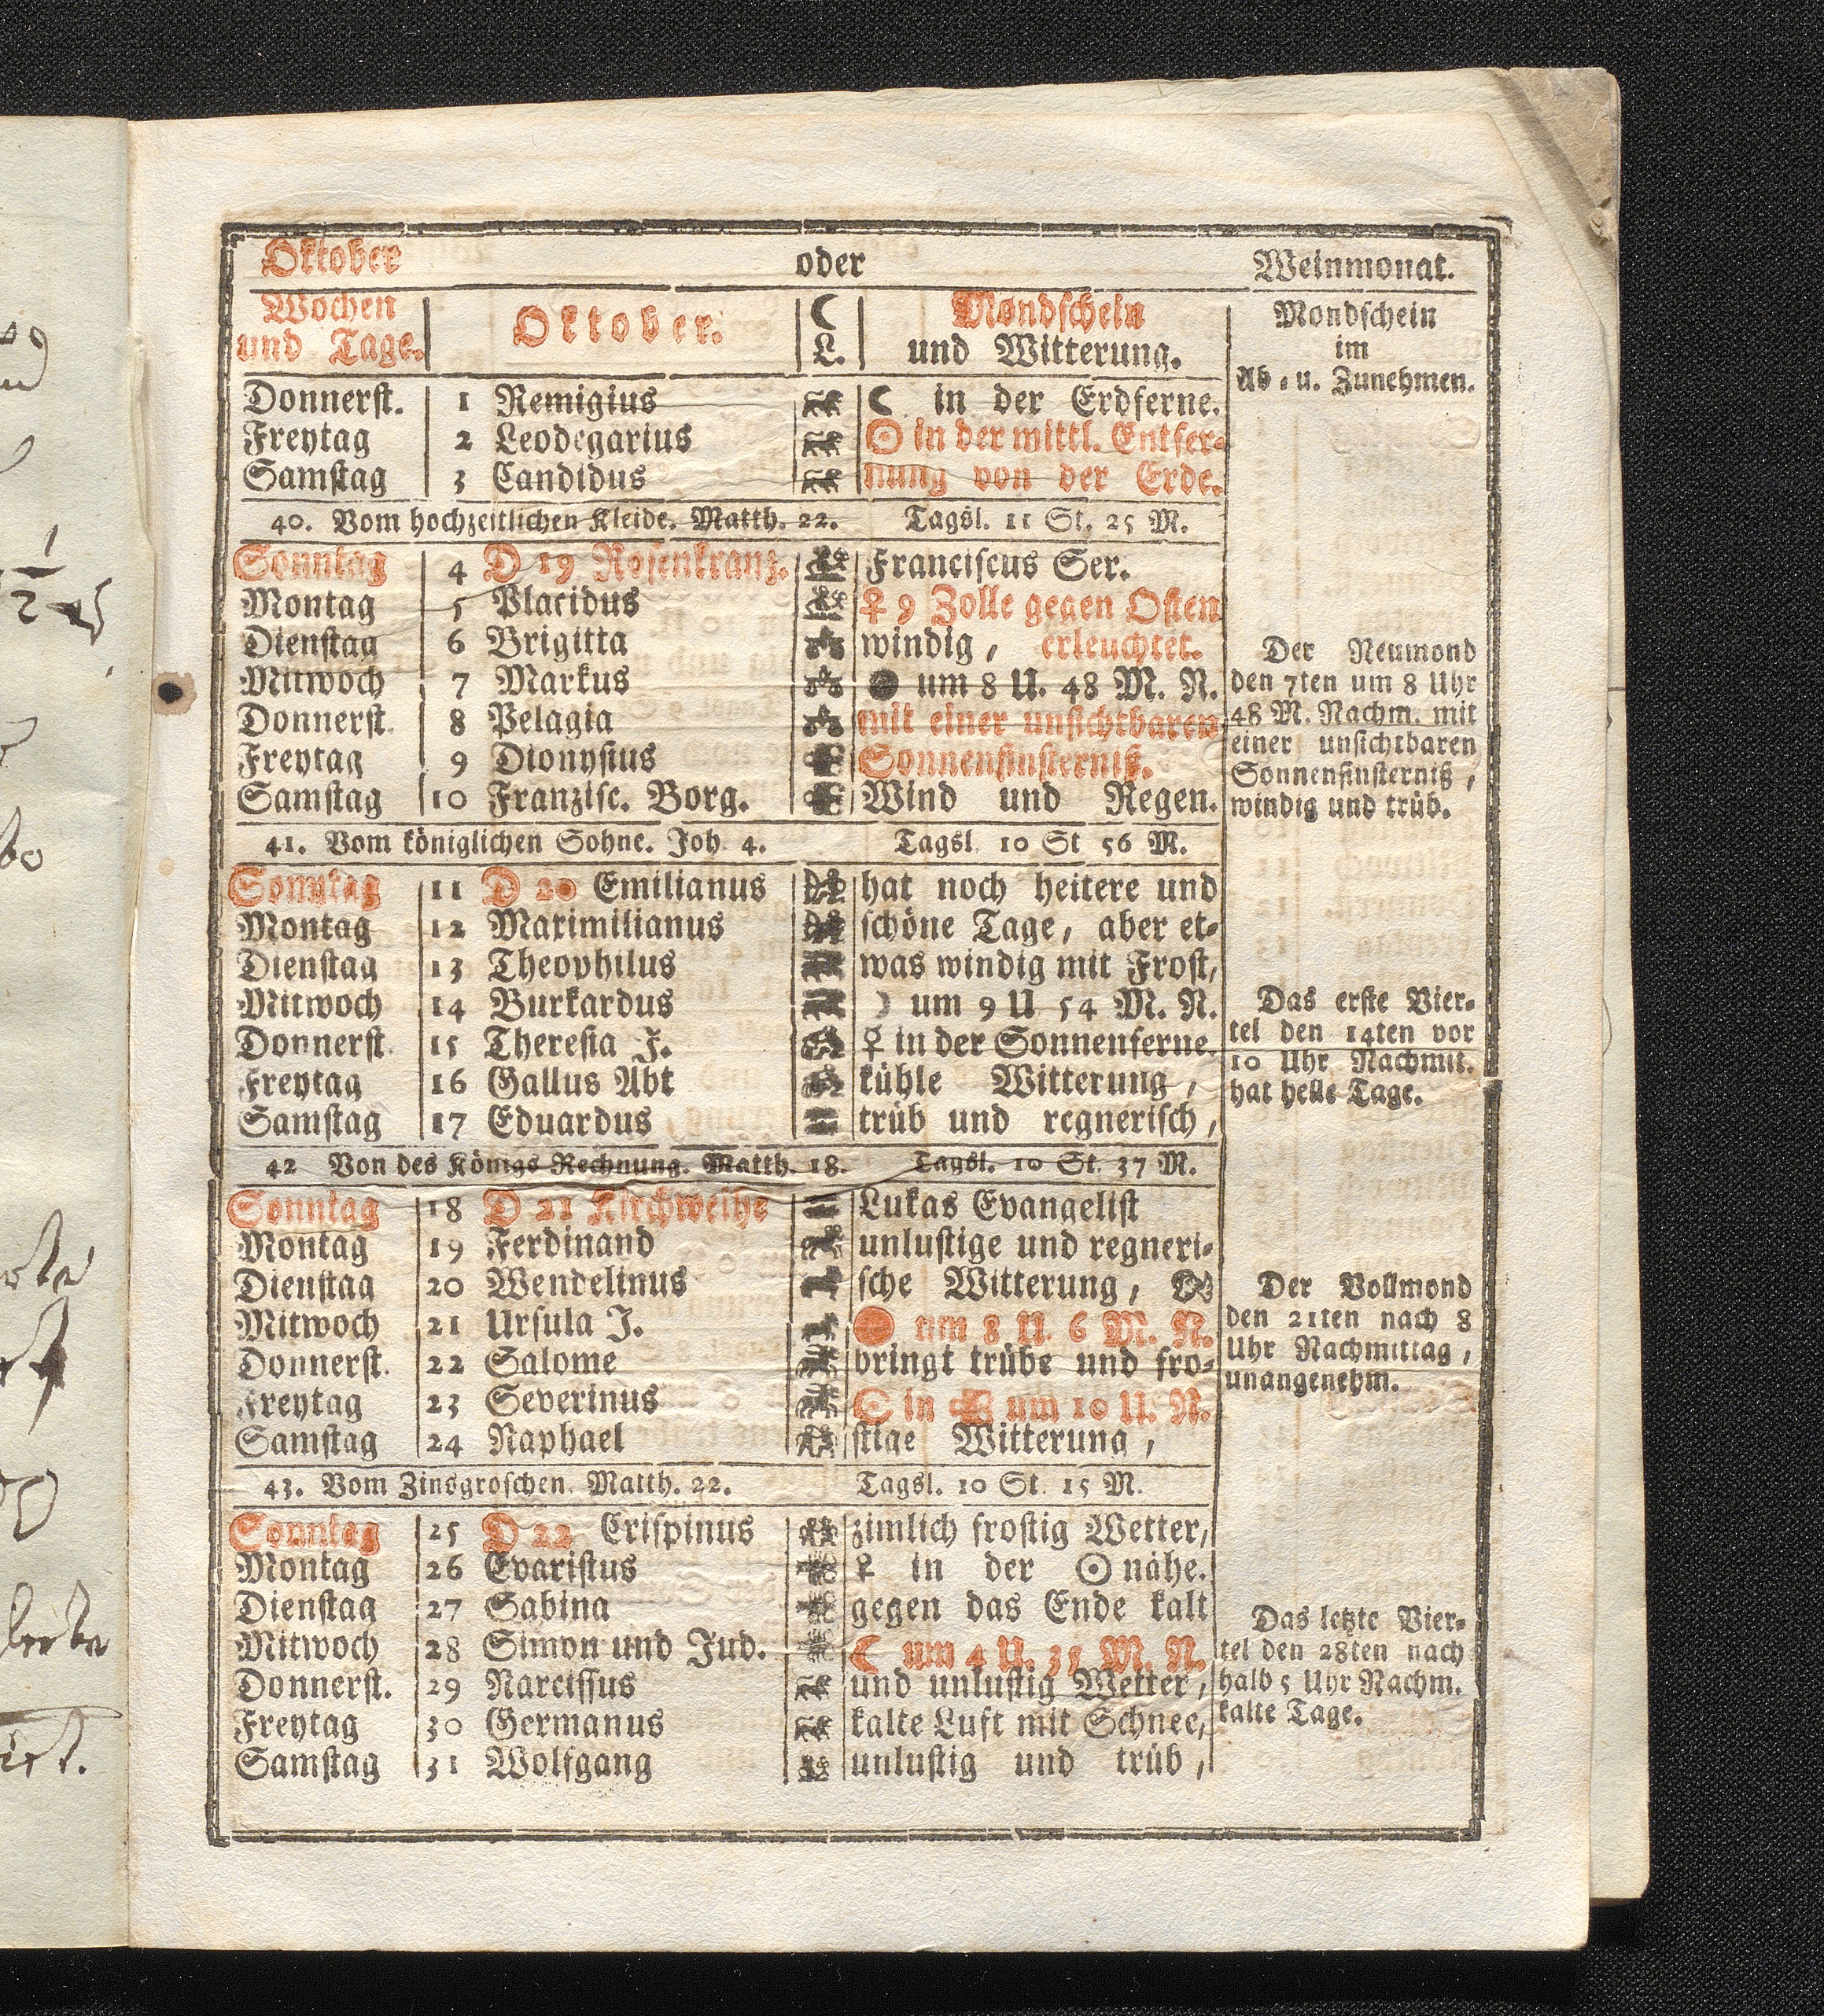 Oktober oder Weinmonat.
Wochen und Tage. Oktober. ☾ L. Mondschein und Witterung. Mondschein im Ab- u. Zunehmen.
Donnerst. 1 Remigius ☾ in der Erdferne.
Freytag 2 Leodegarius ☉ in der mittl. Entfer-
Samstag 3 Candidus nung von der Erde.
40. Vom hochzeitlichen Kleide. Matth. 22. Tagsl. 11 St. 25 M.
Sonntag 4 D 19 Rosenkranz. Franciscus Ser.
Montag 5 Placidus ♀ 9 Zolle gegen Osten
Dienstag 6 Brigitta windig, erleuchtet.
Mittwoch 7 Markus ● um 8 U. 48 M. N.
Donnerst. 8 Pelagia mit einer unsichtbaren
Freytag 9 Dionysius Sonnenfinsterniß.
Samstag 10 Franzisc. Borg. Wind und Regen.
Der Neumond
den 7ten um 8 Uhr
48 M. Nachm. mit
einer unsichtbaren
Sonnenfinsterniß,
windig und trüb.
41. Vom königlichen Sohne. Joh. 4. Tagsl. 10 St 56 M.
Sonntag 11 D 20 Emilianus hat noch heitere und
Montag 12 Maximilianus schöne Tage, aber et-
Dienstag 13 Theophilus was windig mit Frost,
Mitwoch 14 Burkardus ☽ um 9 U 54 M. N.
Donnerst. 15 Theresia J. ☿ in der Sonnenferne.
Freytag 16 Gallus Abt kühle Witterung,
Samstag 17 Eduardus trüb und regnerisch,
Das erste Vier-
tel den 14ten vor
10 Uhr Nachmit.
hat helle Tage.
42 Von des Königs Rechnung. Matth. 18. Tagsl. 10 St. 37 M.
Sonntag 18 D 21 Kirchweihe Lukas Evangelist
Montag 19 Ferdinand unlustige und regneri-
Dienstag 20 Wendelinus sche Witterung,
Mitwoch 21 Ursula J. um 8 U. 6 M. N.
Donnerst. 22 Salome bringt trübe und fro-
Freytag 23 Severinus ☉ in um 10 U. N.
Samstag 24 Raphael stige Witterung,
Der Vollmond
den 21ten nach 8
Uhr Nachmittag,
unangenehm.
43. Vom Zinsgroschen. Matth. 22. Tagsl. 10 St. 15 M.
Sonntag 25 D 22 Crispinus zimlich frostig Wetter,
Montag 26 Evaristus ♀ in der ☉ nähe.
Dienstag 27 Sabina gegen das Ende kalt
Mitwoch 28 Simon und Jud. ☾ um 4 U. 35 M. N.
Donnerst. 29 Narcissus und unlustig Wetter,
Freytag 30 Germanus kalte Luft mit Schnee,
Samstag 31 Wolfgang unlustig und trüb,
Das letzte Vier-
tel den 28ten nach
halb 5 Uhr Nachm.
kalte Tage.